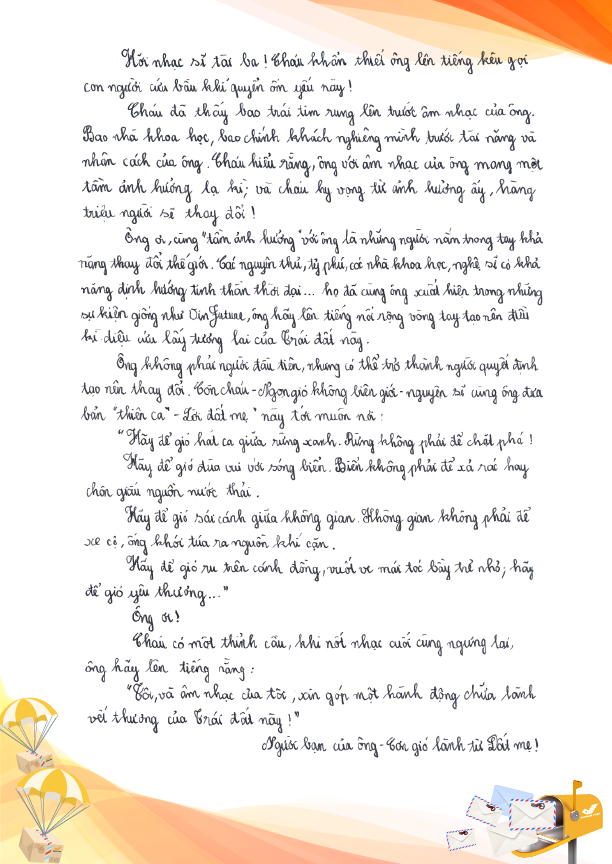 Hỡi nhạc sĩ tài ba! Cháu khẩn thiết ông lên tiếng kêu gọi
con người cứu bầu khí quyển ốm yếu này!
Cháu đã thấy bao trái tim rung lên trước âm nhạc của ông.
Bao nhà khoa học, bao chính khách nghiêng mình trước tài năng và
nhân cách của ông. Cháu hiểu rằng, ông với âm nhạc của ông mang một
tầm ảnh hưởng lạ kì; và cháu hy vọng từ ảnh hưởng ấy, hàng
triệu người sẽ thay đổi!
Ông ơi, cùng "tầm ảnh hưởng" với ông là những người nắm trong tay khả
năng thay đổi thế giới. Các nguyên thủ, tỷ phú, các nhà khoa học, nghệ sĩ có khả
năng định hướng tinh thần thời đại... họ đã cùng ông xuất hiện trong những
sự kiện giống như VinFuture, ông hãy lên tiếng nối rộng vòng tay tạo nên điều
kì diệu cứu lấy tương lai của Trái đất này.
Ông không phải người đầu tiên, nhưng có thể trở thành người quyết định
tạo nên thay đổi. Còn cháu - Ngọn gió không biên giới - nguyện sĩ cùng ông đưa
bản "thiên ca" - Lời đất mẹ " này tới muôn nơi:
"Hãy để gió hát ca giữa rừng xanh. Rừng không phải để chặt phá!
Hãy để gió đùa vui với sóng biển. Biển không phải để xả rác hay
chôn giấu nguồn nước thải.
Hãy để gió sải cánh giữa không gian. Không gian không phải để
xe cộ, ống khói túa ra nguồn khí cặn.
Hãy để gió ru trên cánh đồng, vuốt ve mái tóc bầy trẻ nhỏ; hãy
để gió yêu thương..."
Ông ơi!
Cháu có một thỉnh cầu, khi nốt nhạc cuối cùng ngưng lại,
ông hãy lên tiếng rằng:
"Tôi, và âm nhạc của tôi, xin góp một hành động chữa lành
vết thương của Trái đất này!"
Người bạn của ông - Cơn gió lành từ Đất mẹ!